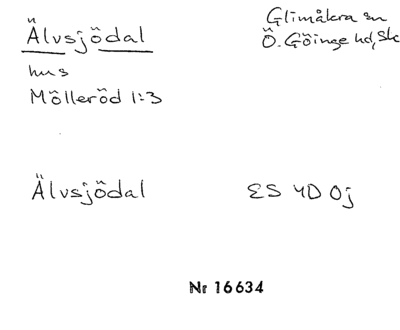 Älvsjödal
Glimåkra sn
Ö. Göinge hd, Sk
hus
Mölleröd 1:3
Älvsjödal
ES 4D 0j
Nr 16634